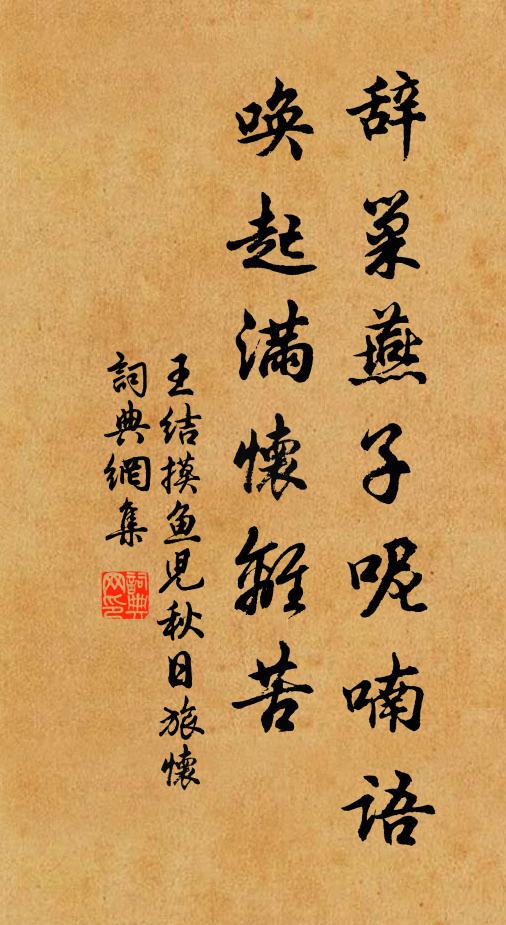 辞巢燕子呢喃语
唤起满怀離苦
王结摸鱼儿秋日旅懷
詞典網集
詞典网印